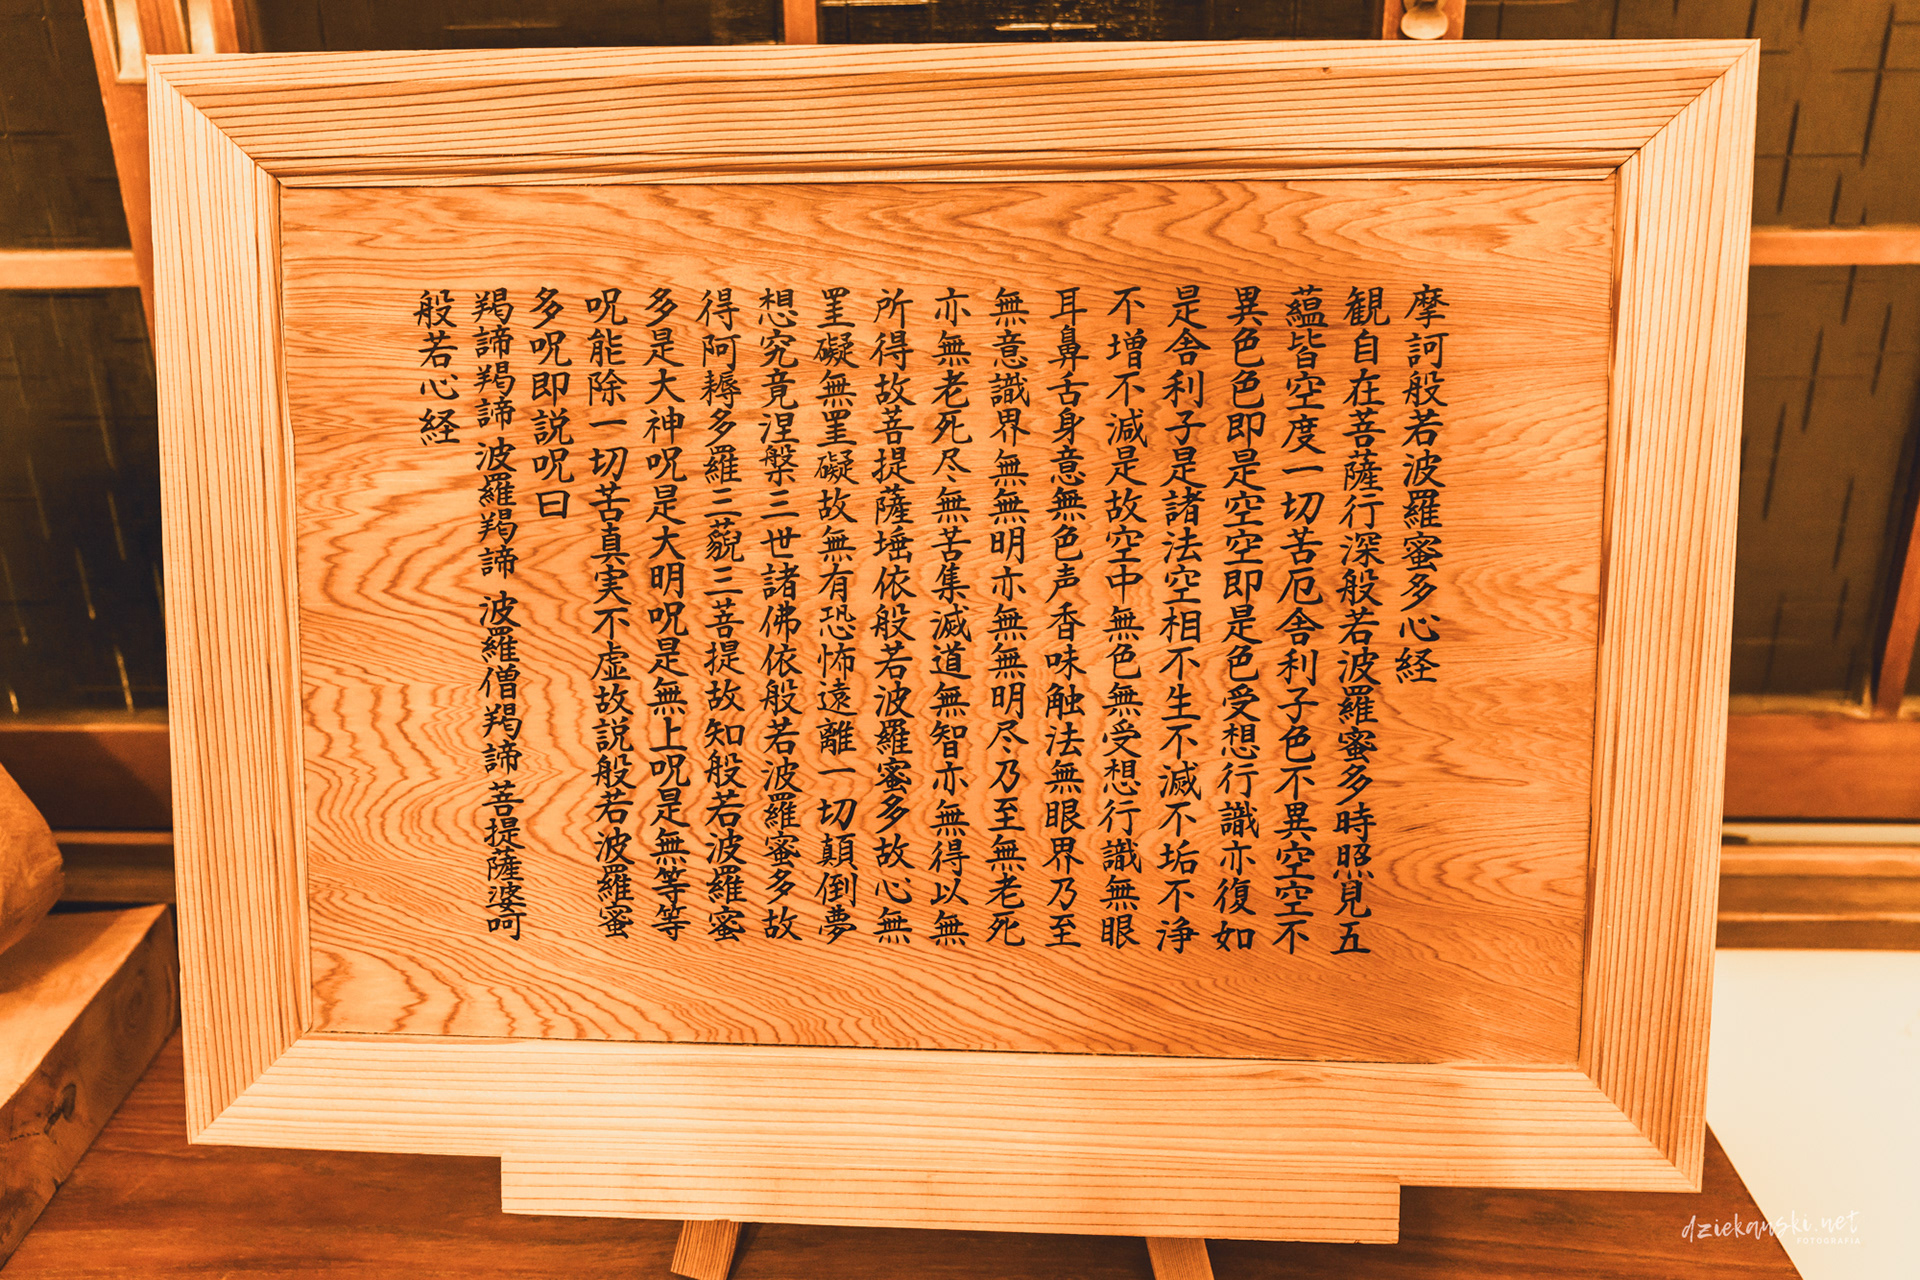 摩訶般若波羅蜜多心経
観自在菩薩行深般若波羅蜜多時照見五
蘊皆空度一切苦厄舎利子色不異空空不
異色色即是空空即是色受想行識亦復如
是舎利子是諸法空相不生不滅不垢不浄
不増不減是故空中無色無受想行識無眼
耳鼻舌身意無色声香味触法無眼界乃至
無意識界無無明亦無無明尽乃至無老死
亦無老死尽無苦集滅道無智亦無得以無
所得故菩提薩埵依般若波羅蜜多故心無
罣礙無罣礙故無有恐怖遠離一切顛倒夢
想究竟涅槃三世諸佛依般若波羅蜜多故
得阿耨多羅三藐三菩提故知般若波羅蜜
多是大神呪是大明呪是無上呪是無等等
呪能除一切苦真実不虚故説般若波羅蜜
多呪即説呪曰
羯諦羯諦 波羅羯諦 波羅僧羯諦 菩提薩婆呵
般若心経
dziekanski.net
FOTOGRAFIA